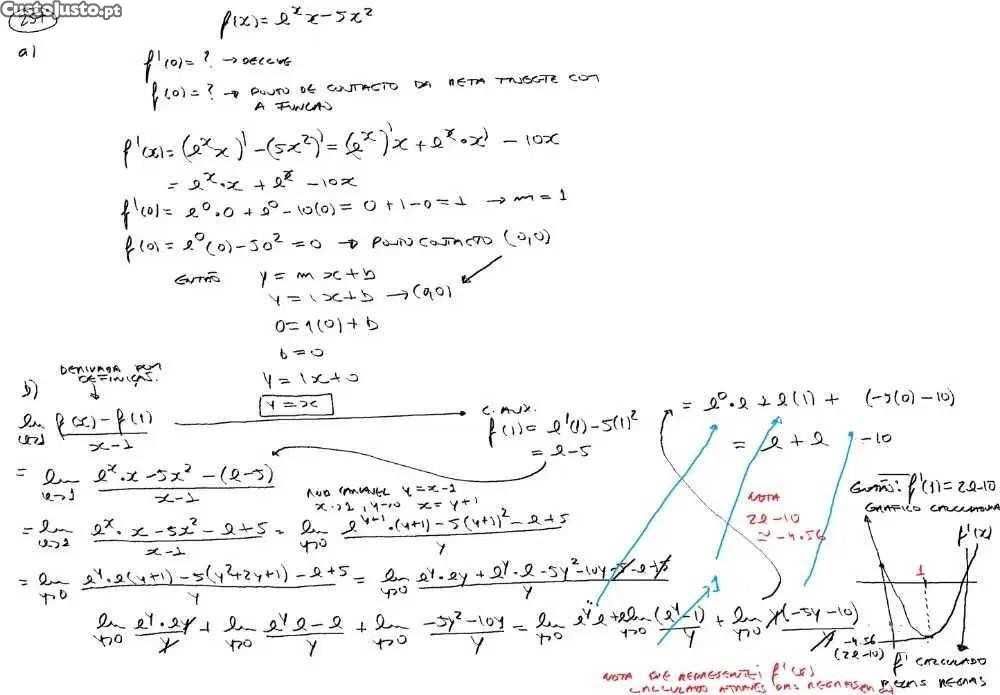 CustoJusto.pt
251
f(x) = e^x x - 5x^2
a)
f'(0) = ? → DECLIVE
f(0) = ? → PONTO DE CONTACTO DA RETA TANGENTE COM
A FUNÇÃO
f'(x) = (e^x x)' - (5x^2)' = (e^x)' x + e^x • x' - 10x
= e^x • x + e^x - 10x
f'(0) = e^0 • 0 + e^0 - 10(0) = 0 + 1 - 0 = 1 → m = 1
f(0) = e^0 (0) - 5 0^2 = 0 → PONTO CONTACTO (0,0)
ENTÃO y = m x + b
y = 1x + b → (0,0)
0 = 1(0) + b
b = 0
y = 1x + 0
y = x
b) DERIVADA POR
DEFINIÇÃO
lim x→1 (f(x) - f(1)) / (x - 1)
C. AUX.
f(1) = e^1(1) - 5(1)^2
= e - 5
= lim x→1 (e^x • x - 5x^2 - (e - 5)) / (x - 1)
y = x - 1
x→1, y→0 x = y + 1
= lim x→1 (e^x • x - 5x^2 - e + 5) / (x - 1) = lim y→0 (e^(y+1) • (y+1) - 5(y+1)^2 - e + 5) / y
= lim y→0 (e^y • e(y+1) - 5(y^2 + 2y + 1) - e + 5) / y = lim y→0 (e^y • ey + e^y • e - 5y^2 - 10y - 5 - e + 5) / y
lim y→0 (e^y • ey) / y + lim y→0 (e^y e - e) / y + lim y→0 (-5y^2 - 10y) / y = lim y→0 e^y e + e lim y→0 (e^y - 1) / y + lim y→0 y(-5y - 10) / y
1
= e^0 • e + e(1) + (-5(0) - 10)
= e + e - 10
NOTA
2e - 10
≈ -4.56
ENTÃO: f'(1) = 2e - 10
GRÁFICO CALCULADORA
f'(x)
1
-4.56
(2e - 10)
f' CALCULADO
PELAS REGRAS
NOTA QUE REPRESENTEI f'(x)
CALCULADO ATRAVÉS DAS REGRAS